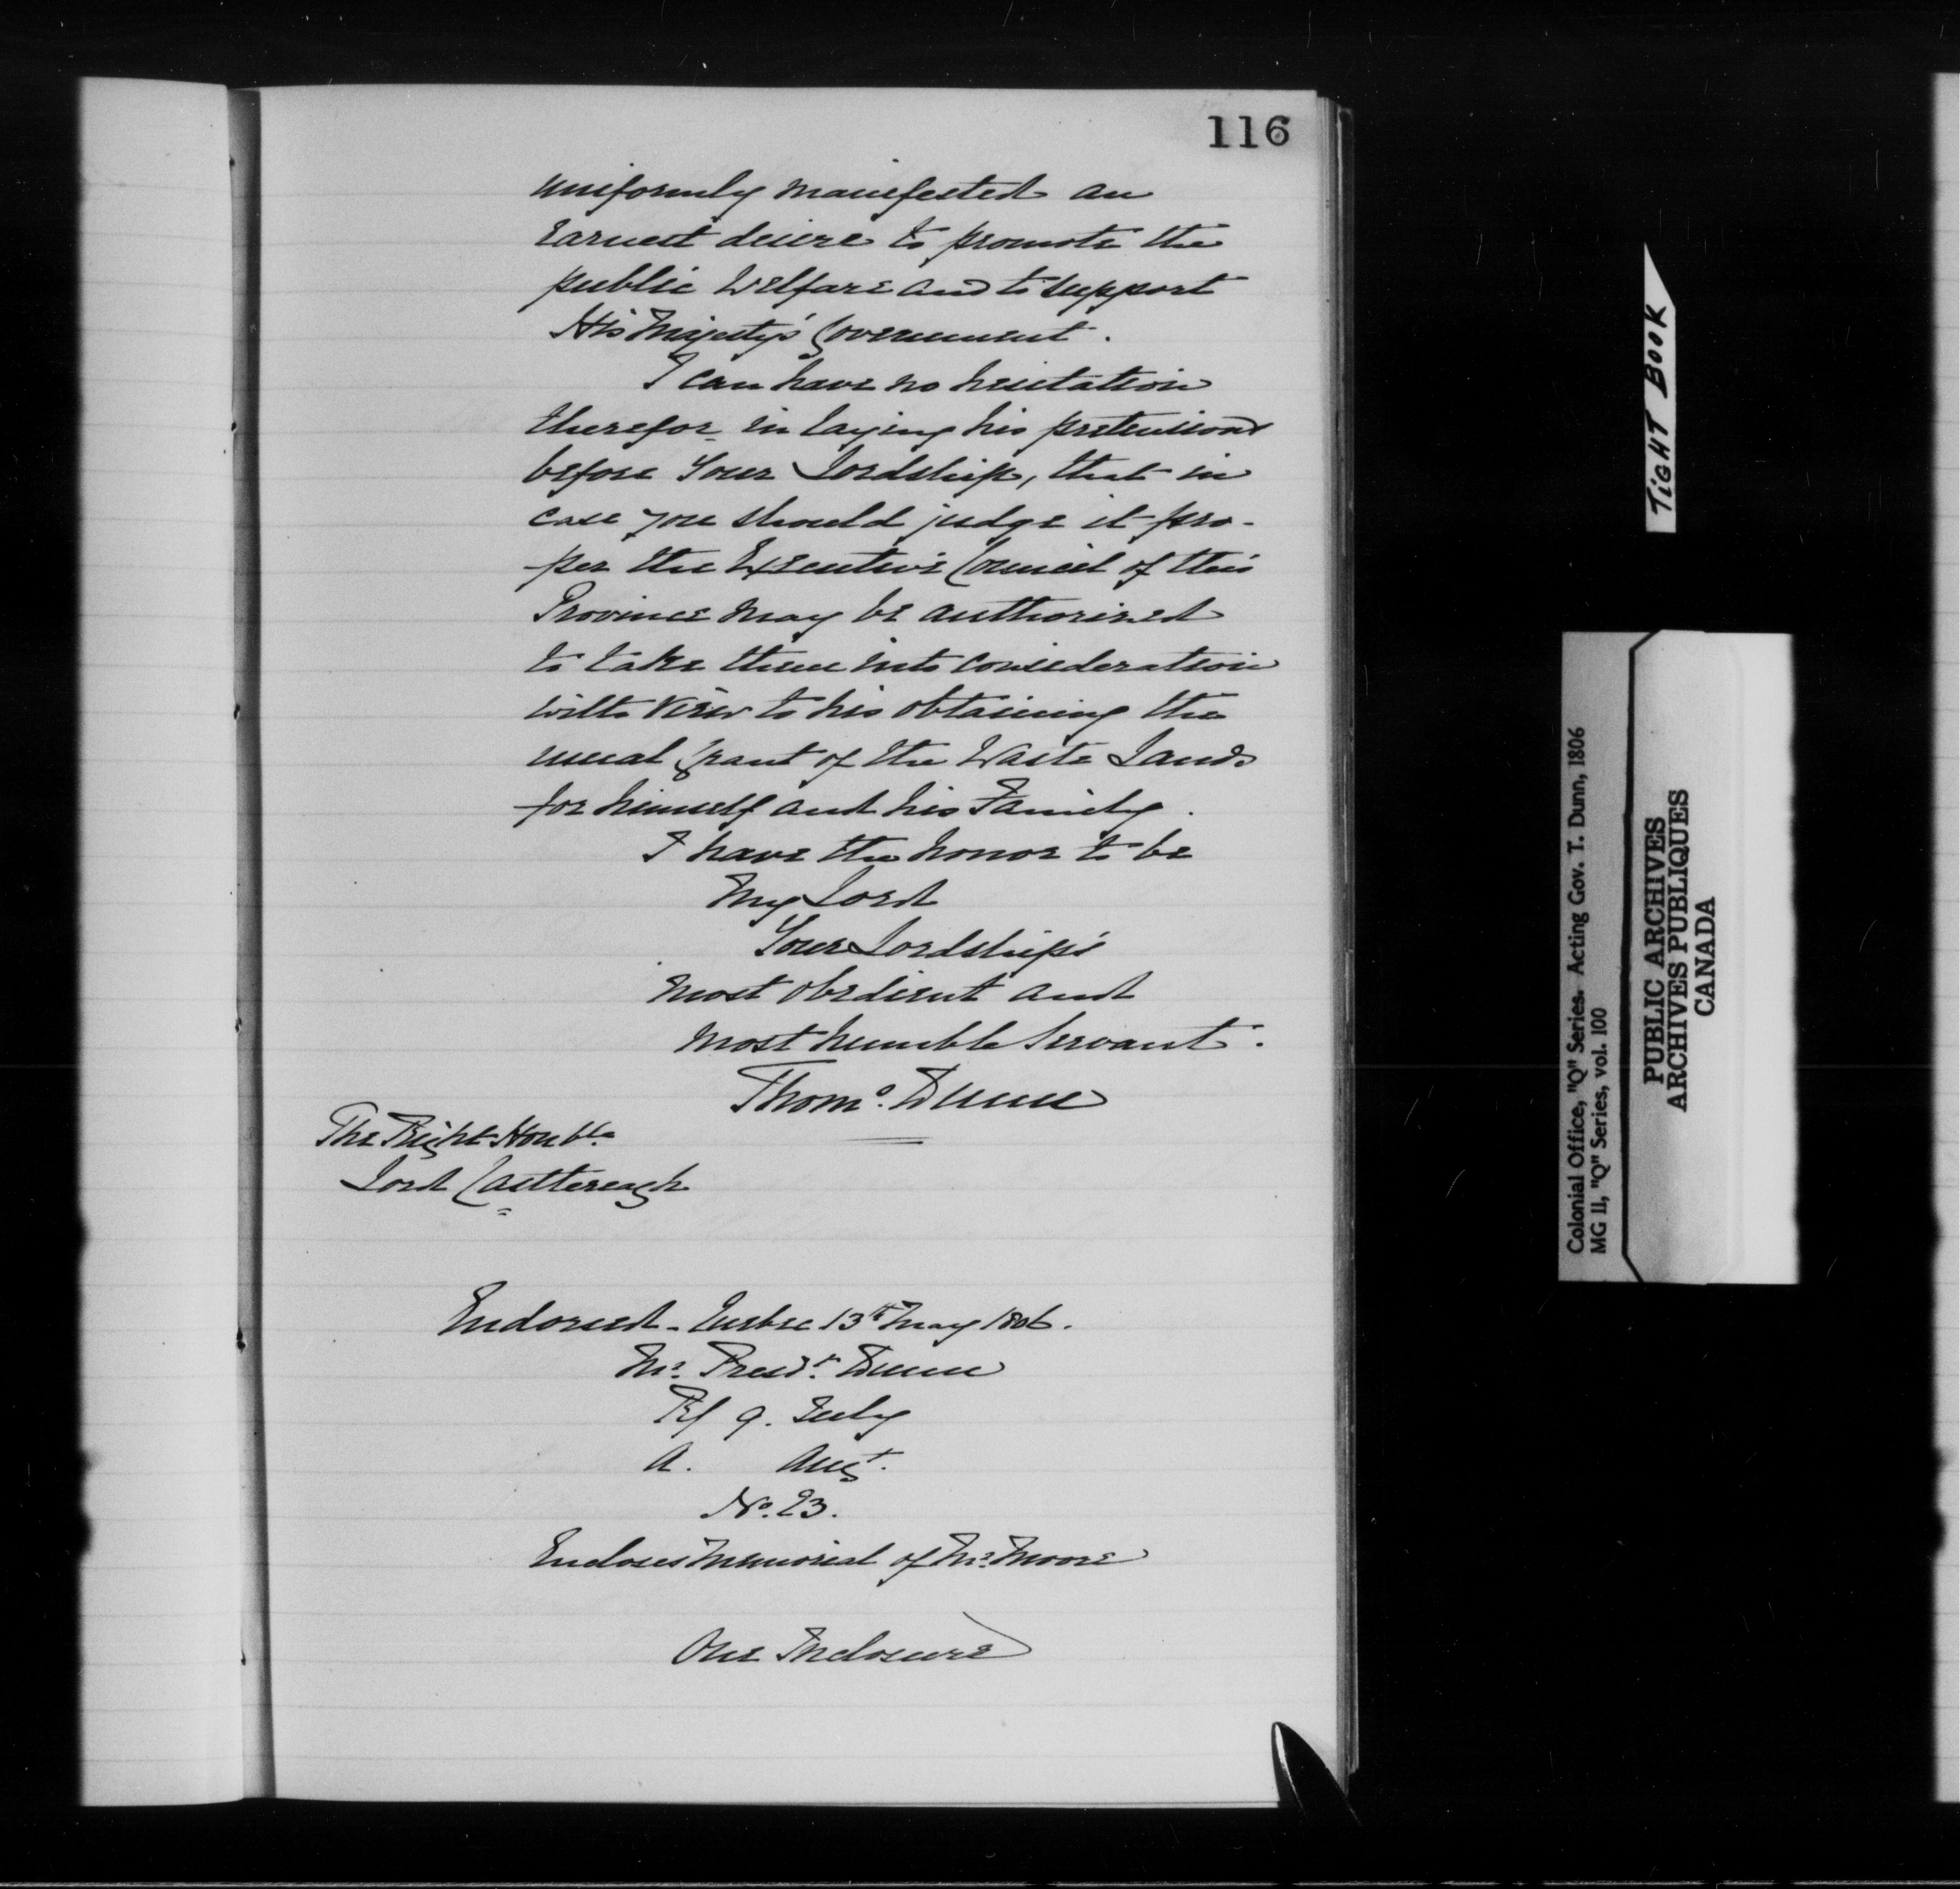 116
uniformly manifested an
earnest desire to promote the
public Welfare and to support
His Majesty's Government.
I can have no hesitation
therefor in laying his pretensions
before Your Lordship, that in
case you should judge it pro-
per the Executive Council of this
Province may be authorized
to take them into consideration
with view to his obtaining the
usual grant of the Waste Lands
for himself and his Family.
I have the honor to be
My Lord
Your Lordship's
most obedient and
most humble Servant.
Thoms. Dunn
The Right Honble
Lord Castlereagh
Endorsed - Quebec 13th May 1806.
Mr. Presdt. Dunn
R/ 9. July
A. Augt.
No. 23.
Encloses Memorial of Mr. Moore
One Inclosure
TIGHT BOOK
Colonial Office, "Q" Series. Acting Gov. T. Dunn, 1806
MG 11, "Q" Series, vol. 100
PUBLIC ARCHIVES
ARCHIVES PUBLIQUES
CANADA